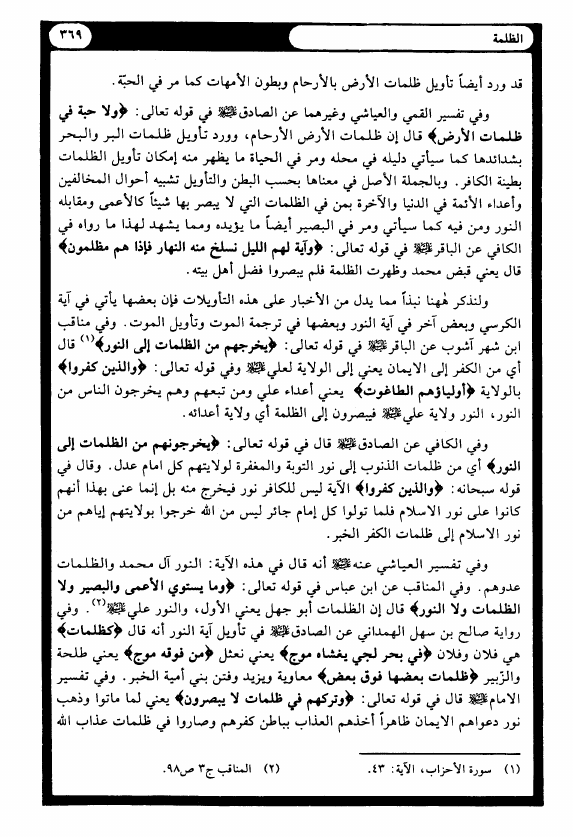 ٣٦٩
الظلمة
قد ورد أيضاً تأويل ظلمات الأرض بالأرحام وبطون الأمهات كما مر في الحبّة.
وفي تفسير القمي والعياشي وغيرهما عن الصادق عليه السلام في قوله تعالى: ﴿ولا حبة في
ظلمات الأرض﴾ قال إن ظلمات الأرض الأرحام، وورد تأويل ظلمات البر والبحر
بشدائدها كما سيأتي دليله في محله ومر في الحياة ما يظهر منه إمكان تأويل الظلمات
بطينة الكافر. وبالجملة الأصل في معناها بحسب البطن والتأويل تشبيه أحوال المخالفين
وأعداء الأئمة في الدنيا والآخرة بمن في الظلمات التي لا يبصر بها شيئاً كالأعمى ومقابله
النور ومن فيه كما سيأتي ومر في البصير أيضاً ما يؤيده ومما يشهد لهذا ما رواه في
الكافي عن الباقر عليه السلام في قوله تعالى: ﴿وآية لهم الليل نسلخ منه النهار فإذا هم مظلمون﴾
قال يعني قبض محمد وظهرت الظلمة فلم يبصروا فضل أهل بيته.
ولنذكر هٰهنا نبذاً مما يدل من الأخبار على هذه التأويلات فإن بعضها يأتي في آية
الكرسي وبعض آخر في آية النور وبعضها في ترجمة الموت وتأويل الموت. وفي مناقب
ابن شهر آشوب عن الباقر عليه السلام في قوله تعالى: ﴿يخرجهم من الظلمات إلى النور﴾(١) قال
أي من الكفر إلى الايمان يعني إلى الولاية لعلي عليه السلام وفي قوله تعالى: ﴿والذين كفروا﴾
بالولاية ﴿أولياؤهم الطاغوت﴾ يعني أعداء علي ومن تبعهم وهم يخرجون الناس من
النور، النور ولاية علي عليه السلام فيبصرون إلى الظلمة أي ولاية أعدائه.
وفي الكافي عن الصادق عليه السلام قال في قوله تعالى: ﴿يخرجونهم من الظلمات إلى
النور﴾ أي من ظلمات الذنوب إلى نور التوبة والمغفرة لولايتهم كل امام عدل. وقال في
قوله سبحانه: ﴿والذين كفروا﴾ الآية ليس للكافر نور فيخرج منه بل إنما عنى بهذا أنهم
كانوا على نور الاسلام فلما تولوا كل إمام جائر ليس من الله خرجوا بولايتهم إياهم من
نور الاسلام إلى ظلمات الكفر الخبر.
وفي تفسير العياشي عنه عليه السلام أنه قال في هذه الآية: النور آل محمد والظلمات
عدوهم. وفي المناقب عن ابن عباس في قوله تعالى: ﴿وما يستوي الأعمى والبصير ولا
الظلمات ولا النور﴾ قال إن الظلمات أبو جهل يعني الأول، والنور علي عليه السلام(٢). وفي
رواية صالح بن سهل الهمداني عن الصادق عليه السلام في تأويل آية النور أنه قال ﴿كظلمات﴾
هي فلان وفلان ﴿في بحر لجي يغشاه موج﴾ يعني نعثل ﴿من فوقه موج﴾ يعني طلحة
والزّبير ﴿ظلمات بعضها فوق بعض﴾ معاوية ويزيد وفتن بني أمية الخبر. وفي تفسير
الامام عليه السلام قال في قوله تعالى: ﴿وتركهم في ظلمات لا يبصرون﴾ يعني لما ماتوا وذهب
نور دعواهم الايمان ظاهراً أخذهم العذاب بباطن كفرهم وصاروا في ظلمات عذاب الله
(١) سورة الأحزاب، الآية: ٤٣.
(٢) المناقب ج٣ ص٩٨.